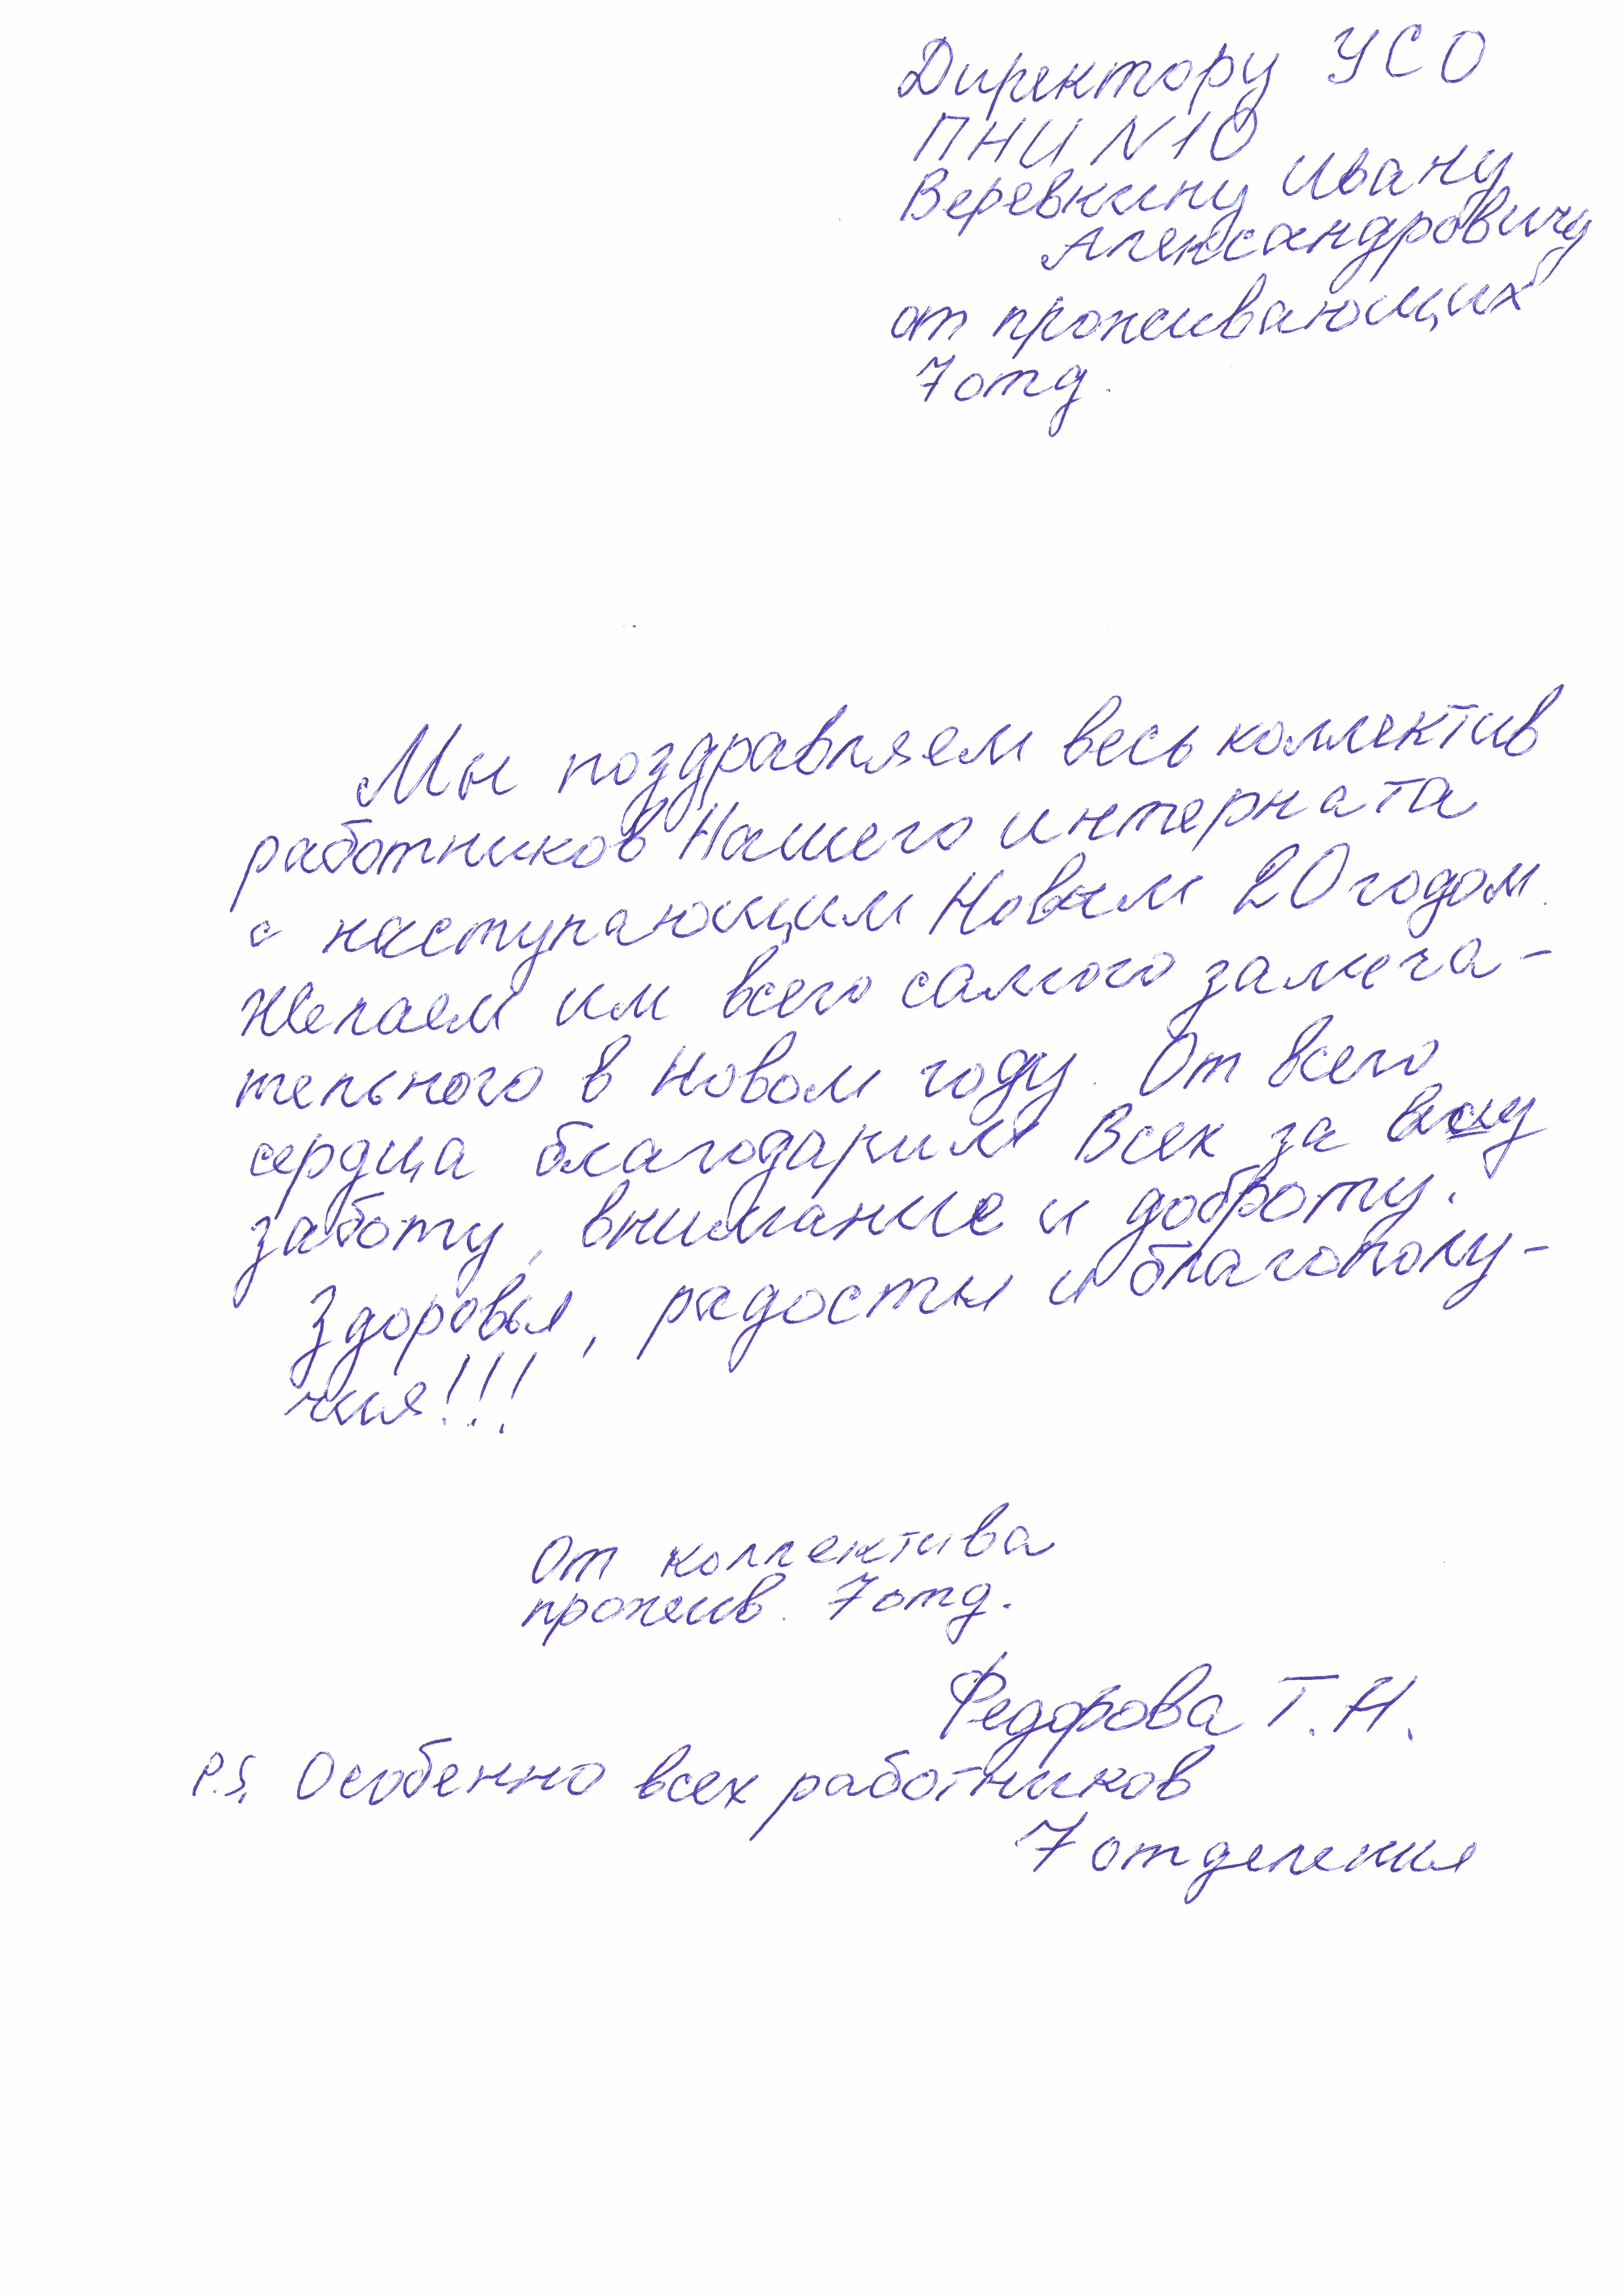 Директору УСО
ПНИ N10
Веревкину Ивану
Александровичу
от проживающих
7 отд.
Мы поздравляем весь коллектив
работников Нашего интерната
с наступающим Новым 20 годом.
Желаем им всего самого замеча-
тельного в Новом году. От всего
сердца благодарим Всех за вашу
заботу, внимание и доброту.
Здоровья, радости и благополу-
чия!!!
От коллектива
прожив. 7 отд.
Федорова Т.Н.
P.S. Особенно всех работников
7 отделения